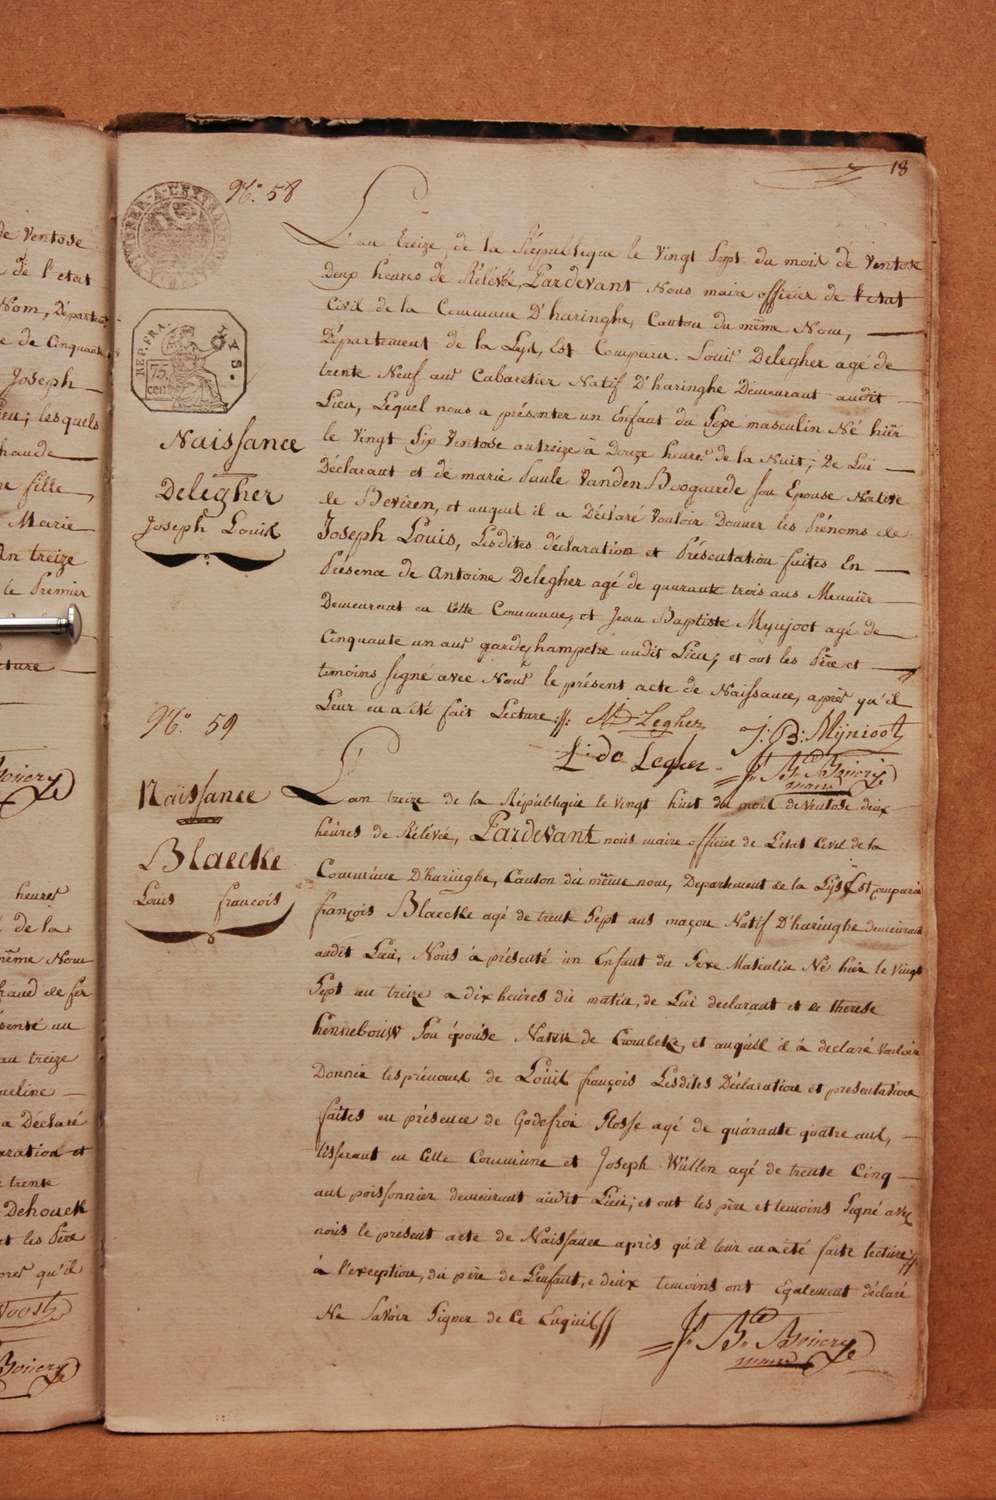 18
N.o 58
L'an treize de la République le vingt sept du mois de ventose
Deux heures de Rélévé, Pardevant Nous maire officier de l'etat
Civil de la Commune D'haringhe, Canton du même Nom,
Département de la Lys, Est Comparu. Louis Delegher agé de
trente Neuf ans Cabaretier Natif D'haringhe Demeurant audit
Lieu, Lequel nous a présenter un Enfant du Sexe masculin Né hiër
le Vingt Six Ventose an treize à Douze heures de la Nuit; De Lui
Déclarant et de marie Paule VandenBoogaerde son Epouse Native
de Beviren, et auquel il a Déclaré vouloir Donner les Prénoms de
Joseph Louis, Lesdites déclaration et Présentation faites En
Présence de Antoine Delegher agé de quarante trois ans Meunier
Demeurant en cette Commune, et Jean Baptiste Mynjoot agé de
Cinquante un ans garde champetre audit Lieu; et ont les Père et
temoins signé avec Nous le présent acte de Naissance, après qu'il
Leur en a été fait Lecture
REP. FRA.
75
cen
LYS.
Naissance
Delegher
Joseph Louis
J: B: Mijnioot
L: de Legher
J. B. Boiery
maire
N.o 59
Naissance
Blaecke
Louis francois
L'an treize de la République le vingt huit du mois de Ventose deux
heures de Rélévée, Pardevant nous maire officier de L'état Civil de la
Commune D'haringhe, Canton du même nom, Departement de la Lys Est comparu
françois Blaecke agé de trente Sept ans maçon Natif D'haringhe demeurant
audit Lieu, Nous à présenté un Enfant du Sexe Masculin Né hier le Vingt
Sept an treize a dix heures du matin, de Lui declarant et de therese
hennebouw Son épouse Native de Crombeke, et auquel il à declaré vouloir
Donner les prénoms de Louis françois Lesdites Déclaration et presentation
faites en présence de Godefroi Rosse agé de quarante quatre ans,
tisserant en cette Commune et Joseph Wullen agé de trente Cinq
ans poissonnier demeurant audit Lieu; et ont les père et temoins Signé avec
nous le présent acte de Naissance après qu'il leur en a été faite lecture
à l'exception, du père de L'enfant, e deux temoins ont Egalement déclaré
Ne Savoir Signer de Ce Enquis
J. B. Boiery
maire